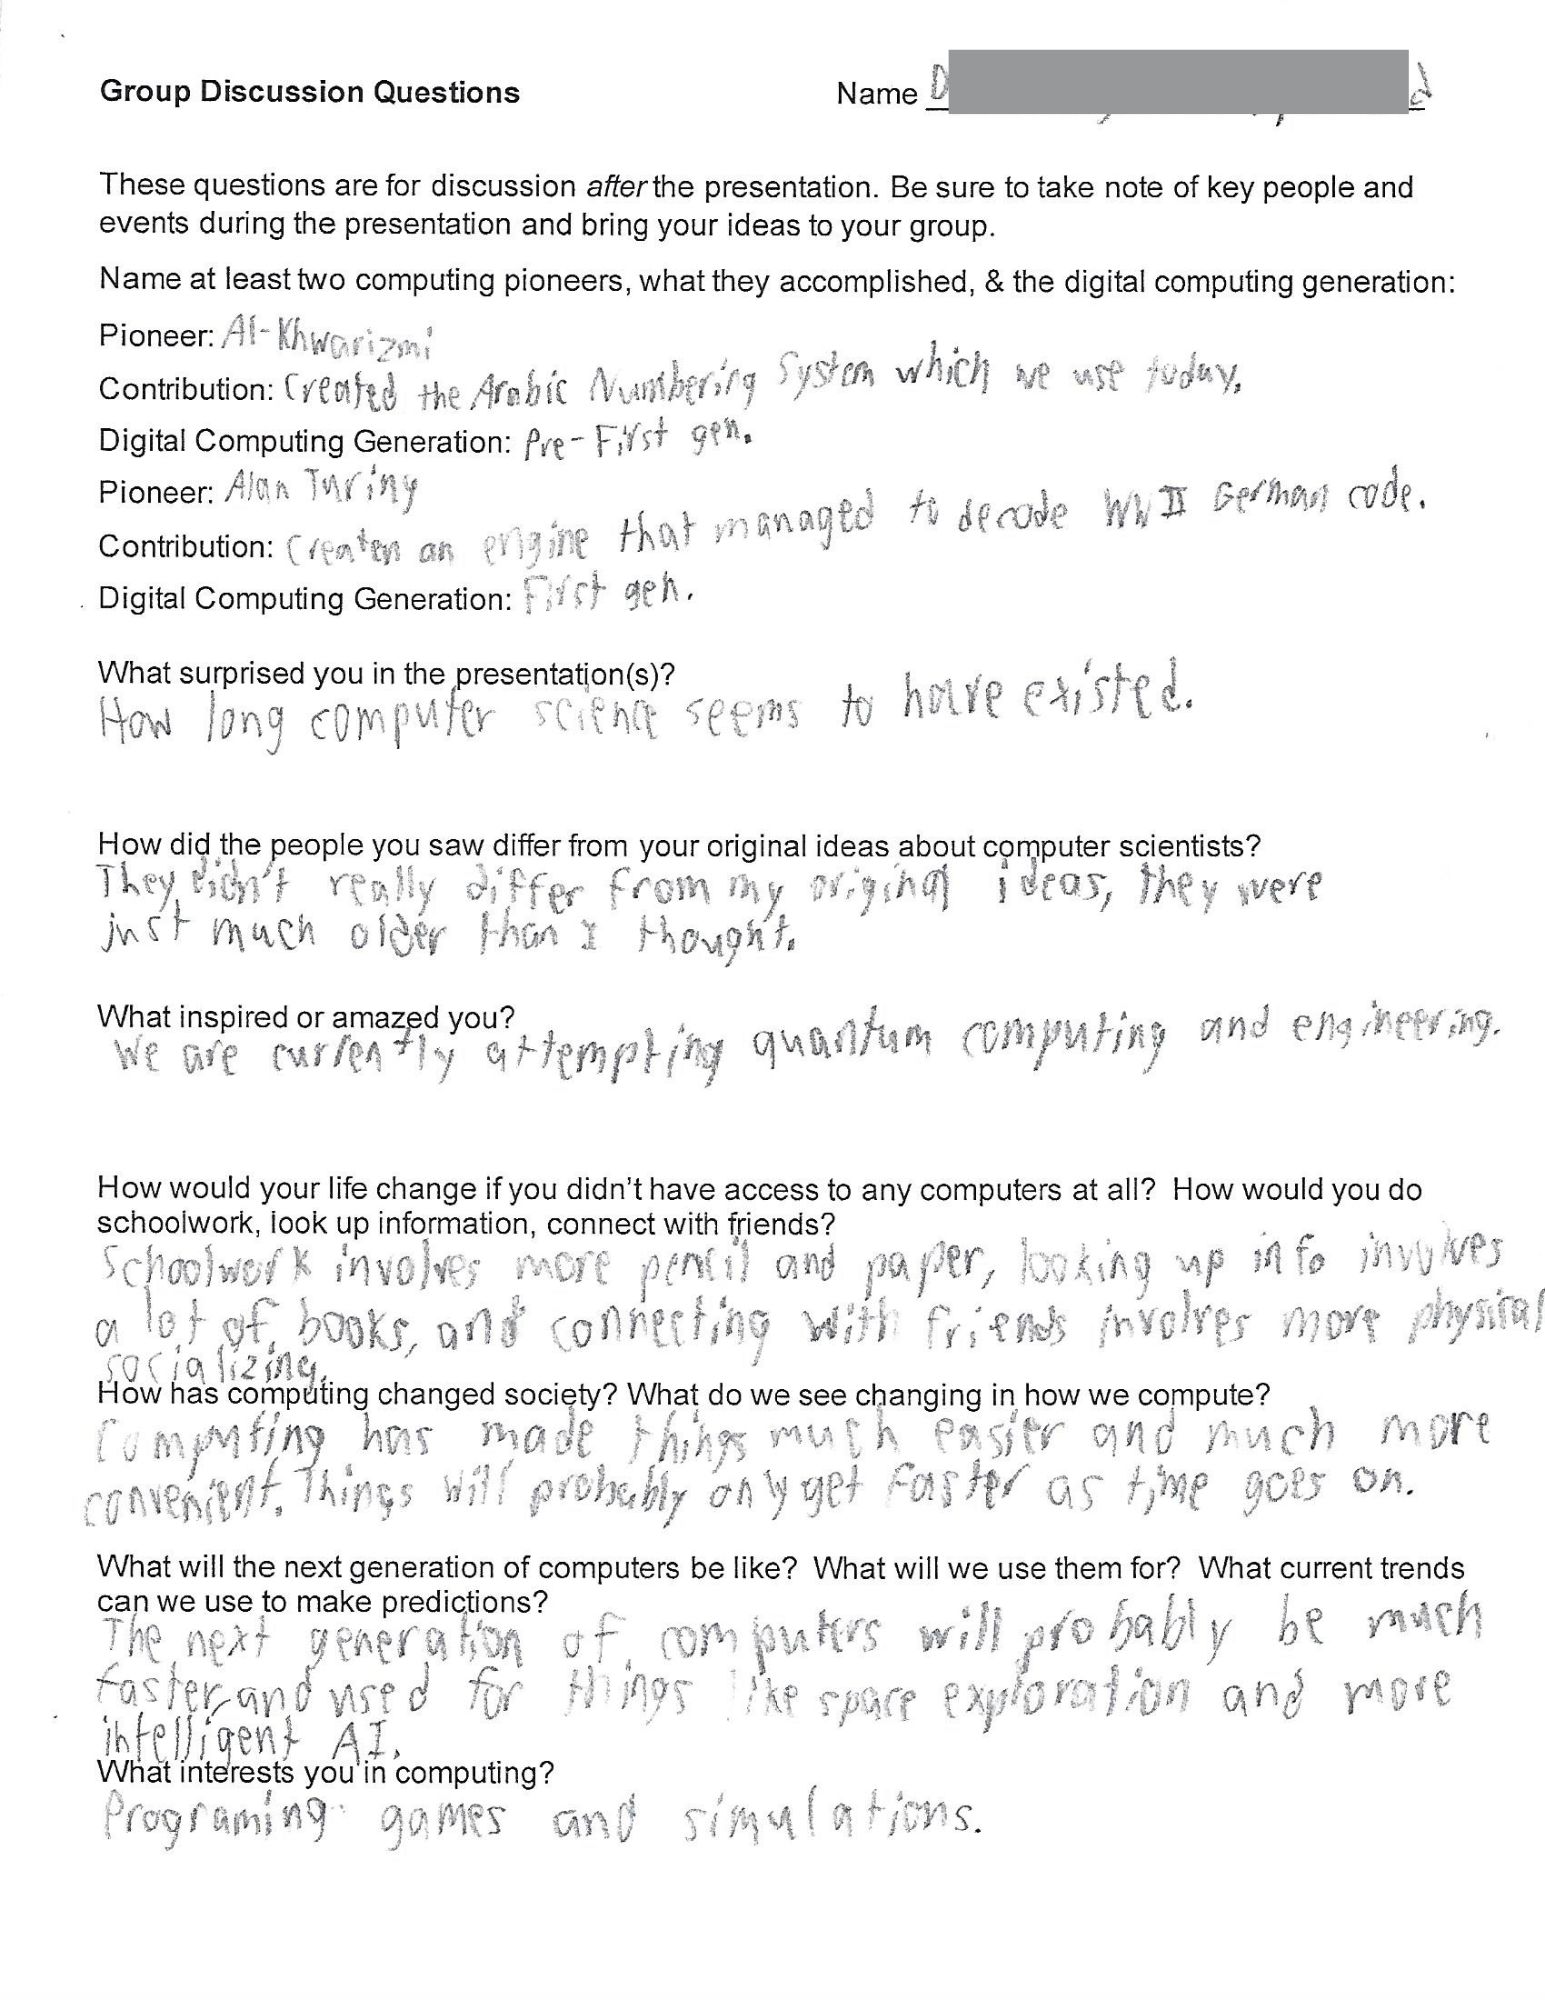 Group Discussion Questions Name D d
These questions are for discussion after the presentation. Be sure to take note of key people and
events during the presentation and bring your ideas to your group.
Name at least two computing pioneers, what they accomplished, & the digital computing generation:
Pioneer: Al-Khwarizmi
Contribution: Created the Arabic Numbering System which we use today.
Digital Computing Generation: Pre-First gen.
Pioneer: Alan Turing
Contribution: Createn an engine that managed to decode WW II German code.
Digital Computing Generation: First gen.
What surprised you in the presentation(s)?
How long computer science seems to have existed.
How did the people you saw differ from your original ideas about computer scientists?
They didn't really differ from my original ideas, they were
just much older than I thought.
What inspired or amazed you?
We are currently attempting quantum computing and engineering.
How would your life change if you didn't have access to any computers at all? How would you do
schoolwork, look up information, connect with friends?
Schoolwork involves more pencil and paper, looking up info involves
a lot of books, and connecting with friends involves more physical
socializing.
How has computing changed society? What do we see changing in how we compute?
Computing has made things much easier and much more
convenient. Things will probably only get faster as time goes on.
What will the next generation of computers be like? What will we use them for? What current trends
can we use to make predictions?
The next generation of computers will probably be much
faster and used for things like space exploration and more
intelligent AI.
What interests you in computing?
Programing games and simulations.